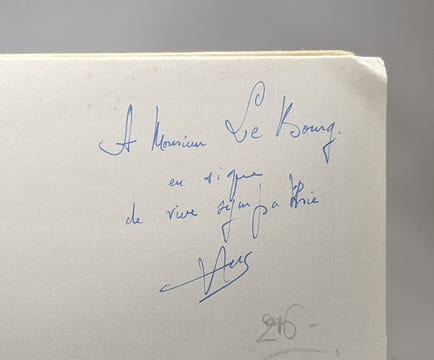 A Monsieur Le Bourg.
en signe
de vive sympathie